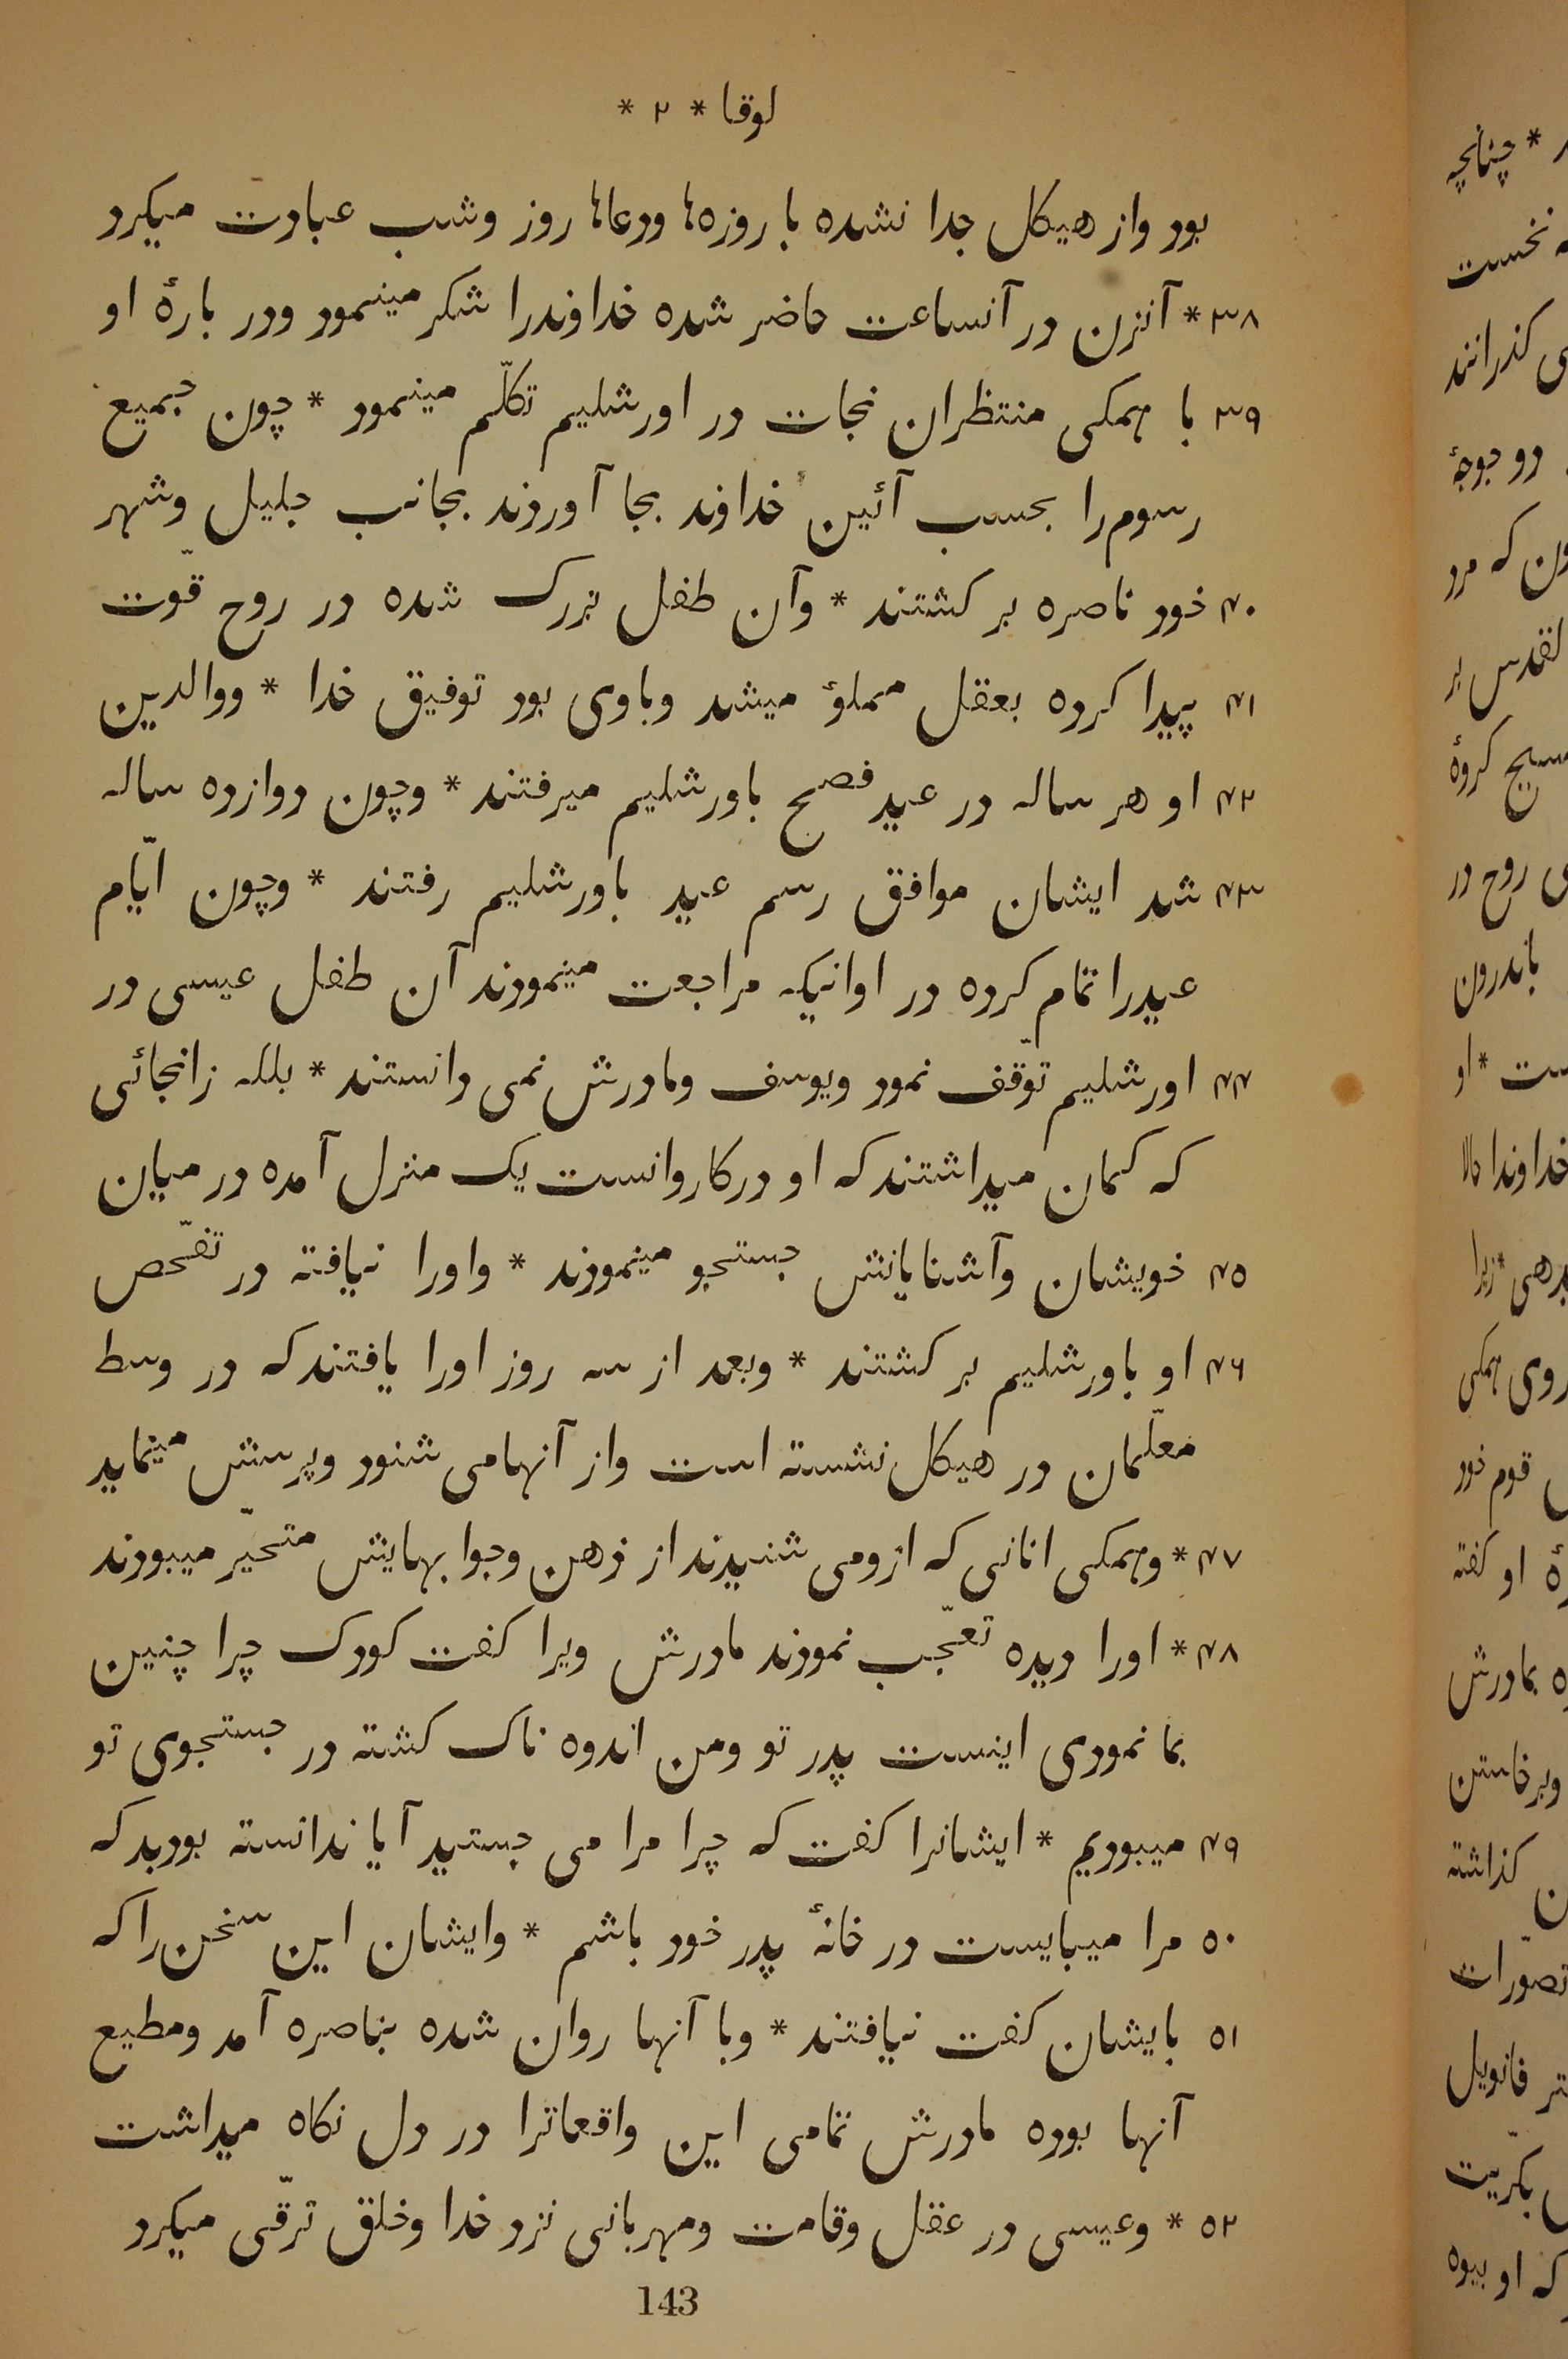 لوقا * ۲ *
بود واز هیکل جدا نشده با روزه‌ها ودعاها روز وشب عبادت میکرد
۳۸ * آنزن در آنساعت حاضر شده خداوندرا شکر مینمود ودر بارهٔ او
۳۹ با همکی منتظران نجات در اورشلیم تکلّم مینمود * چون جمیع
رسوم‌را بحسب آئین خداوند بجا آوردند بجانب جلیل وشهر
۴۰ خود ناصره بر کشتند * وآن طفل بزرک شده در روح قوّت
۴۱ پیدا کرده بعقل مملوٴ میشد وباوی بود توفیق خدا * ووالدین
۴۲ او هر ساله در عید فصح باورشلیم میرفتند * وچون دوازده ساله
۴۳ شد ایشان موافق رسم عید باورشلیم رفتند * وچون ایّام
عیدرا تمام کرده در اوانیکه مراجعت مینمودند آن طفل عیسی در
۴۴ اورشلیم توقّف نمود ویوسف ومادرش نمی دانستند * بلکه زانجائی
که کمان میداشتند که او درکاروانست یک منزل آمده در میان
۴۵ خویشان وآشنایانش جستجو مینمودند * واورا نیافته در تفحّص
۴۶ او باورشلیم بر کشتند * وبعد از سه روز اورا یافتند که در وسط
معلّمان در هیکل نشسته است واز آنها می شنود وپرسش مینماید
۴۷ * وهمکی انانی که ازومی شنیدند از ذهن وجوابهایش متحیّر میبودند
۴۸ * اورا دیده تعجّب نمودند مادرش ویرا کفت کودک چرا چنین
بما نمودی اینست پدر تو ومن اندوه ناک کشته در جستجوی تو
۴۹ میبودیم * ایشانرا کفت که چرا مرا می جستید آیا ندانسته بودید که
۵۰ مرا میبایست در خانهٔ پدر خود باشم * وایشان این سخن‌را که
۵۱ بایشان کفت نیافتند * وبا آنها روان شده بناصره آمد ومطیع
آنها بوده مادرش تمامی این واقعاترا در دل نکاه میداشت
۵۲ * وعیسی در عقل وقامت ومهربانی نزد خدا وخلق ترقّی میکرد
143
* چنانچه
نخست
کذرانند
دو جوجهٔ
که مرد
مسیح کردهٔ
روح در
باندرون
* او
خداوندا حالا
زیرا
روی همکی
قوم خود
او کفته
بمادرش
وبرخاستن
کذاشته
تصوّرات
فانویل
که او بیوه